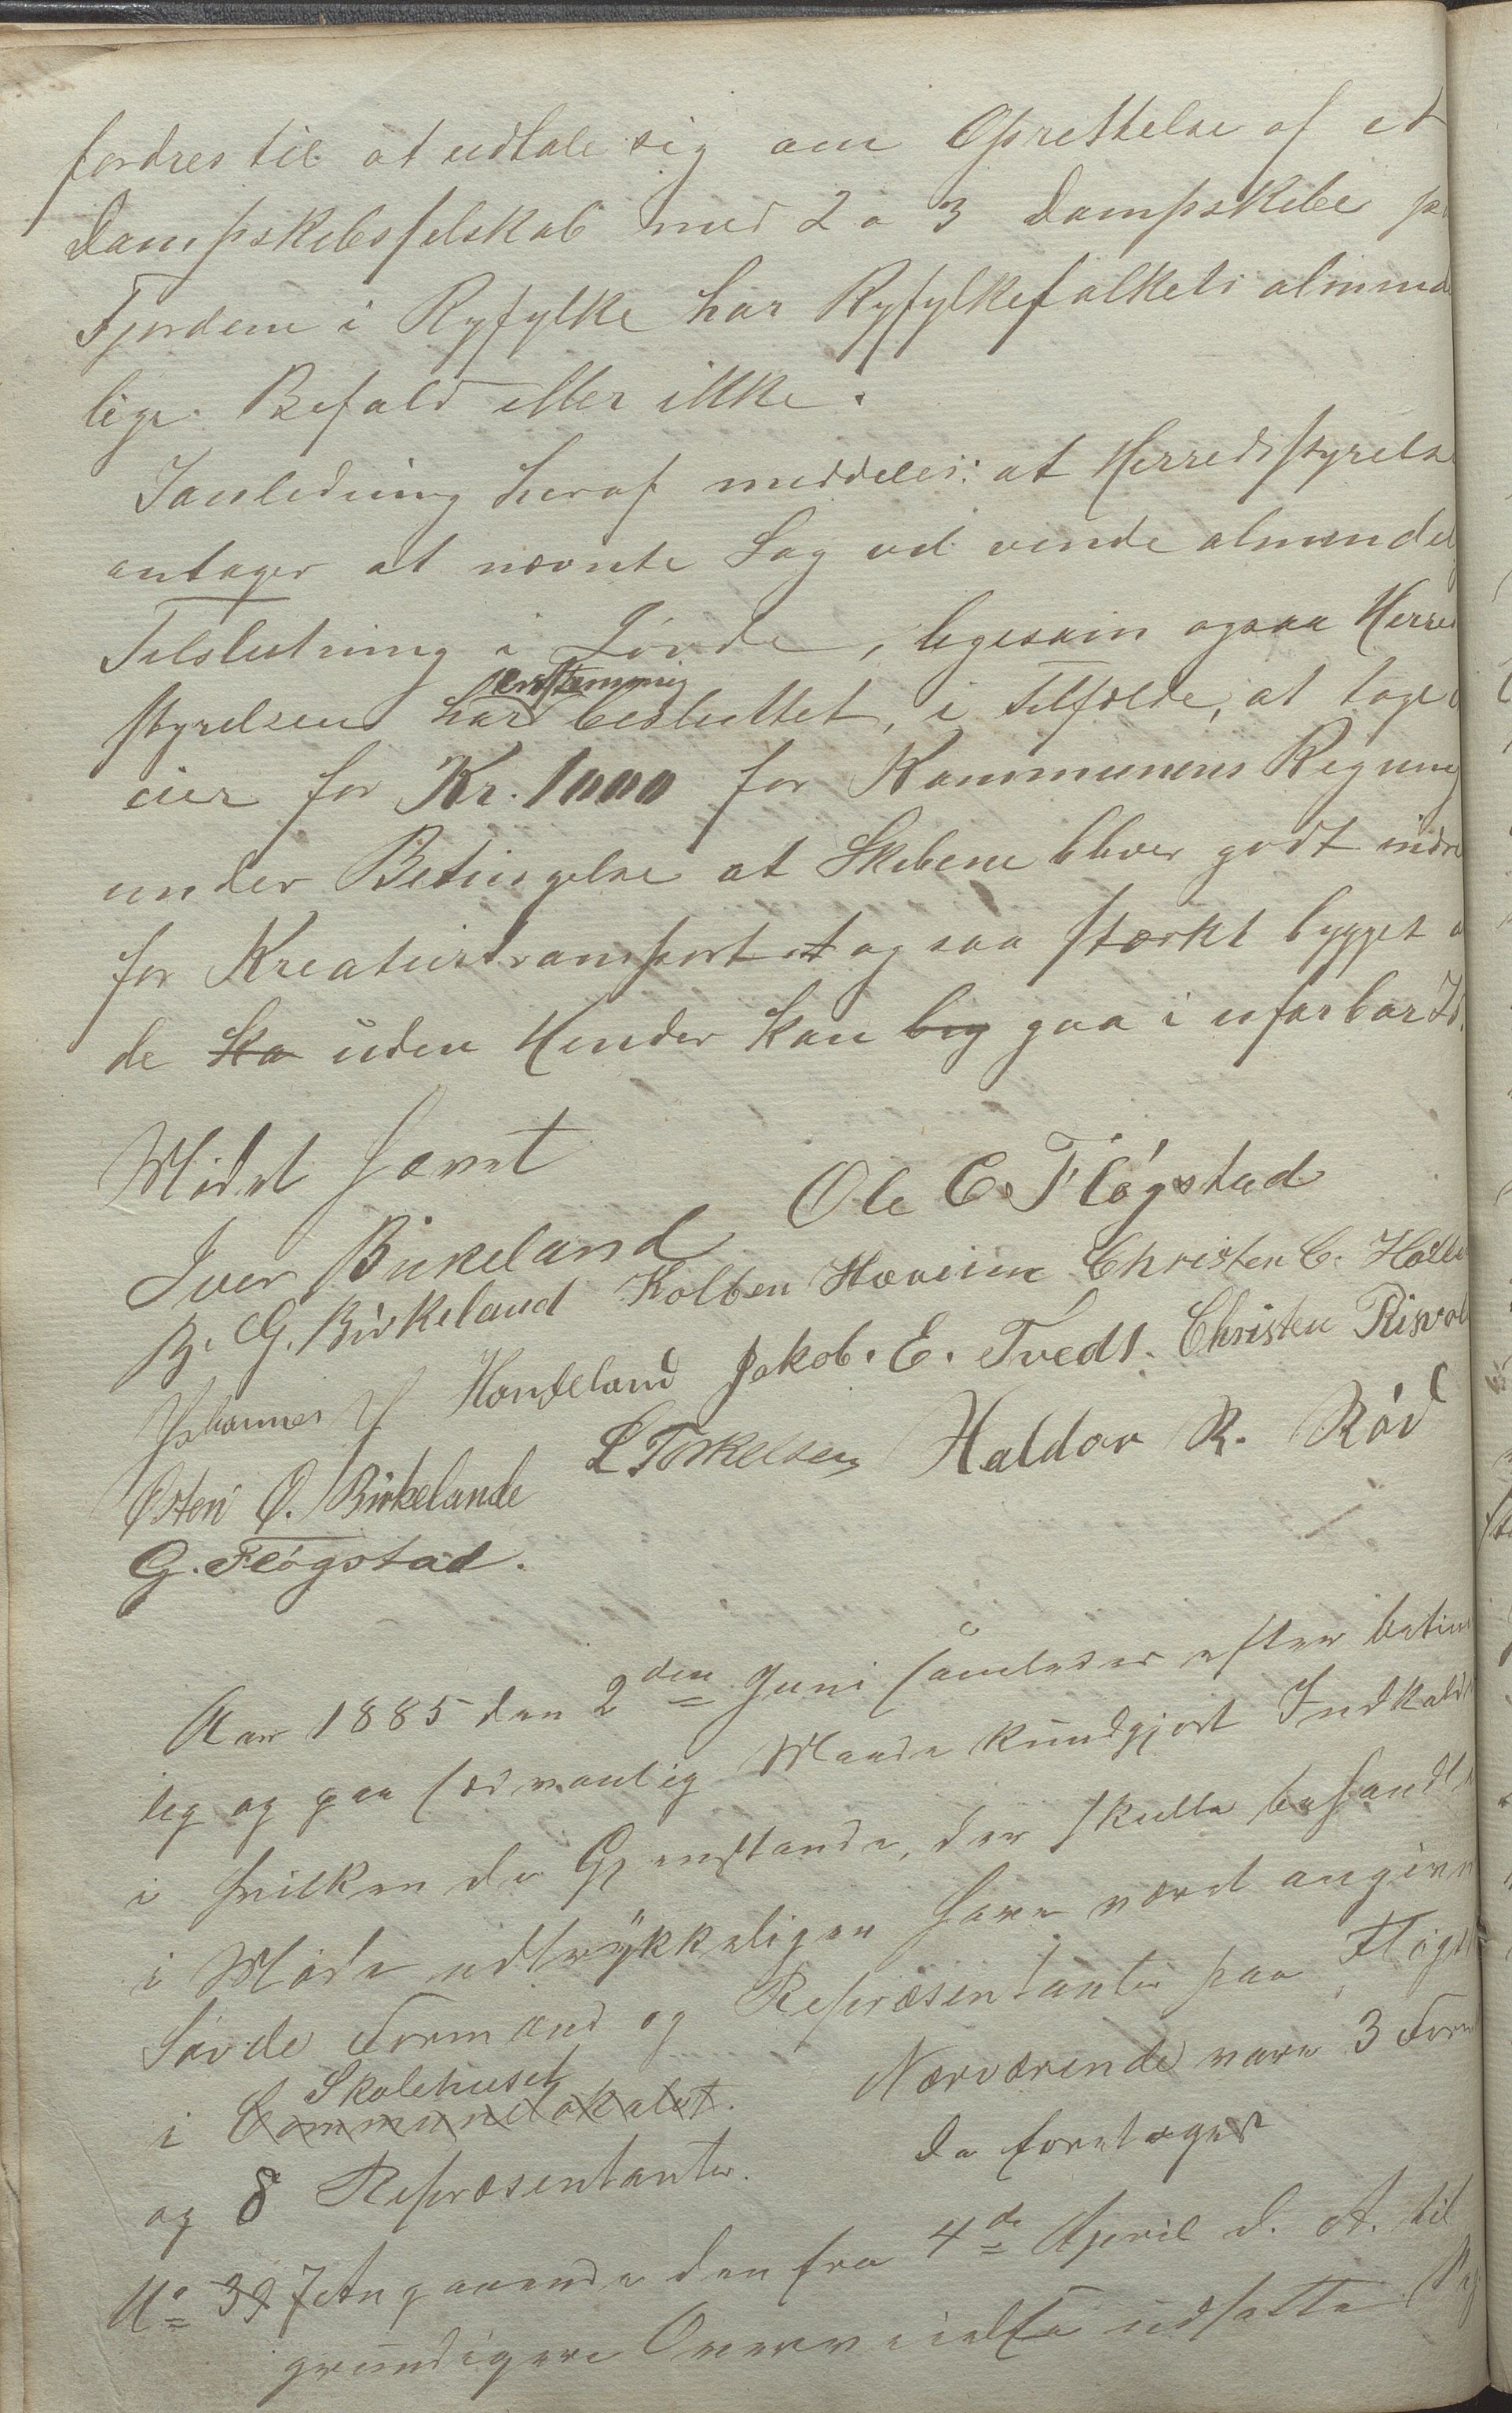 fordres til at udtale sig om Oprettelse af et
Dampskibsselskab med 2 a 3 Dampskibe p
Fjordene i Ryfylke har Ryfylkefolkets alminde
lige Bifald eller ikke.
Ianledning heraf meddeles: at Herredsstyrelse
antager at nævnte Sag vil vinde almindel
Tilslutning i Søvde, ligesom ogsaa Herred
styrelsen har enstemmig besluttet, i Tilfælde, at tage
eier for Kr. 1000 for Kommunens Regning
under Betingelse at Skibene bliver godt indre
for Kreaturtransport et og saa stærkt bygget a
de ska uden Hinder kan byg gaa i ufarbar Is.
Mødet hævet
Ole C. Fløgstad
Iver Birkeland
B. G. Birkeland Kolben Hæreim Christen C. Halle
Johannes J Handeland Jakob. E. Tvedt. Christen Risvol
Østen O. Birkelande L Torkelsen Haldor R. Rød
G. Fløgstad.
Aar 1885 den 2den Juni samledes efter betime
lig og paa sædvanlig Maade kundgjort Indkalde
i hvilken de Gjenstande, der skulle behandl
i Møde udtrykkeligen have været angivn
Søvde Formænd og Repræsentanter paa Fløgst
i Communelokalet. Skolehuset Nærværende vare 3 Form
og 8 Repræsentanter. Da foretoges
No 39 7 Angaaende den fra 4de April d. A. til
grundigere Overveielse udsatte